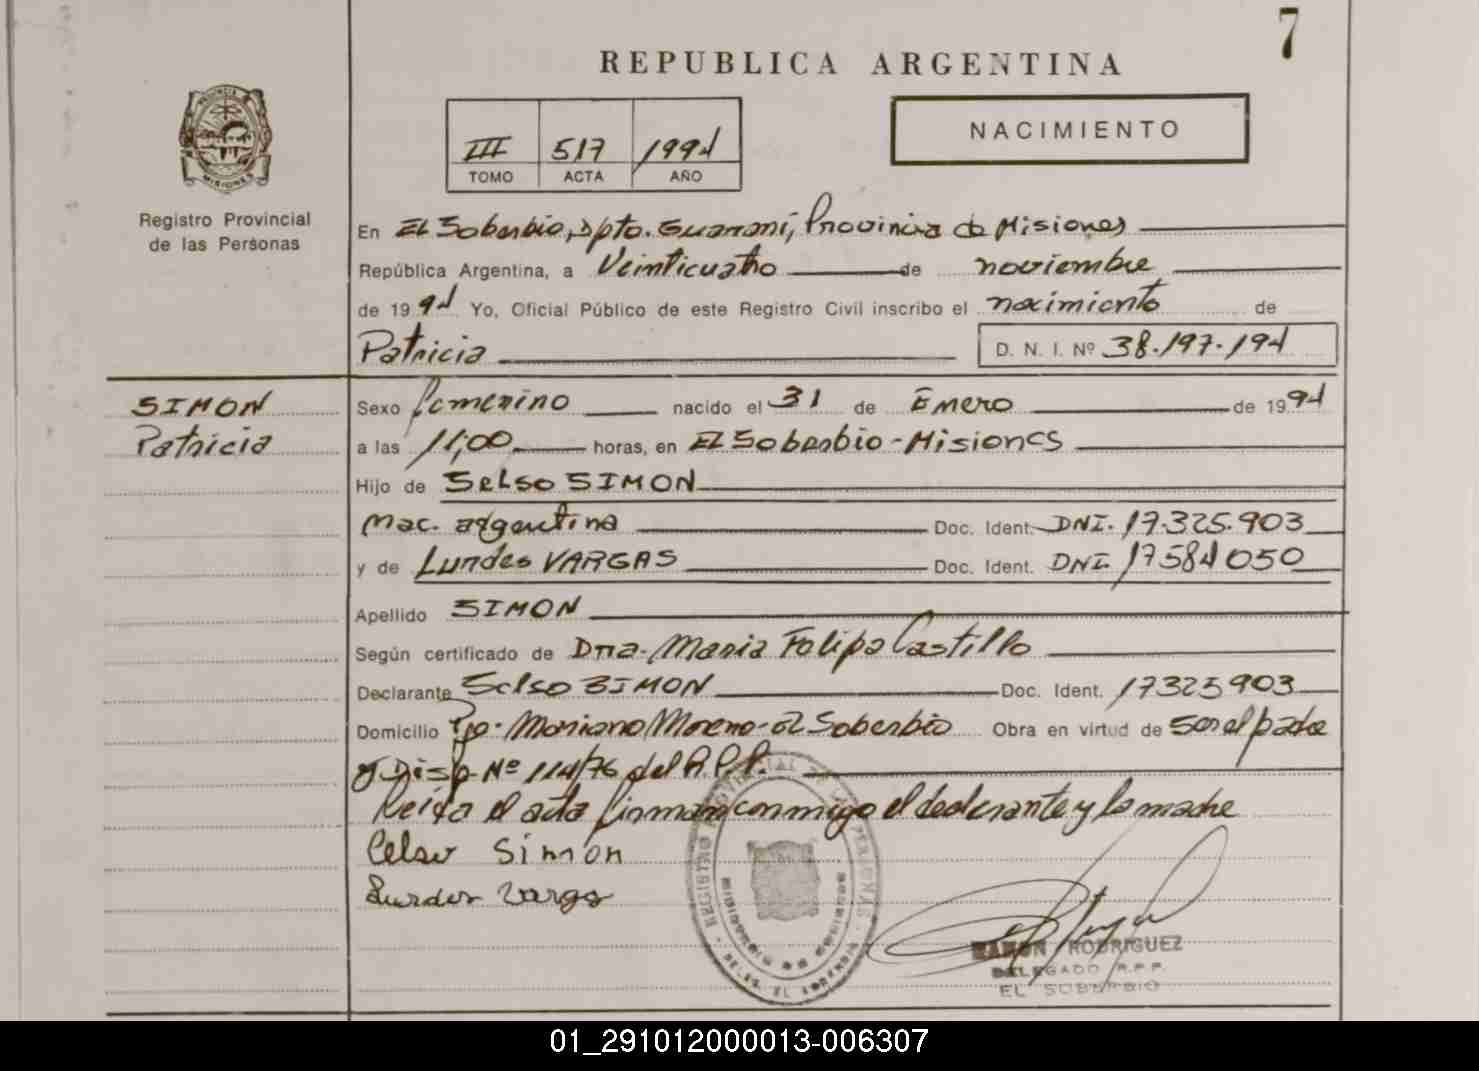 7
REPUBLICA ARGENTINA
NACIMIENTO
III 517 1994
TOMO ACTA AÑO
PROVINCIA
MISIONES
Registro Provincial
de las Personas
En El Soberbio, Dpto. Guaraní, Provincia de Misiones
República Argentina, a Veinticuatro de noviembre
de 1994 Yo, Oficial Público de este Registro Civil inscribo el nacimiento de
Patricia D. N. I. Nº 38.197.194
SIMON
Patricia
Sexo femenino nacido el 31 de Enero de 1994
a las 11,00 horas, en El Soberbio - Misiones
Hijo de Selso SIMON
Nac. argentina Doc. Ident. DNI. 17.325.903
y de Lurdes VARGAS Doc. Ident. DNI 17584050
Apellido SIMON
Según certificado de Dña. Maria Felipa Castillo
Declarante Selso SIMON Doc. Ident. 17325903
Domicilio Pje. Mariano Moreno - El Soberbio Obra en virtud de ser el padre
y Disp. Nº 114/76 del R.P.P.
Leída el acta firman conmigo el declarante y la madre
Celso Simón
Lurdes Varga
REGISTRO PROVINCIAL DE LAS PERSONAS
PROVINCIA DE MISIONES
DELEG. EL SOBERBIO
RAMON RODRIGUEZ
DELEGADO R.P.P.
EL SOBERBIO
01_291012000013-006307